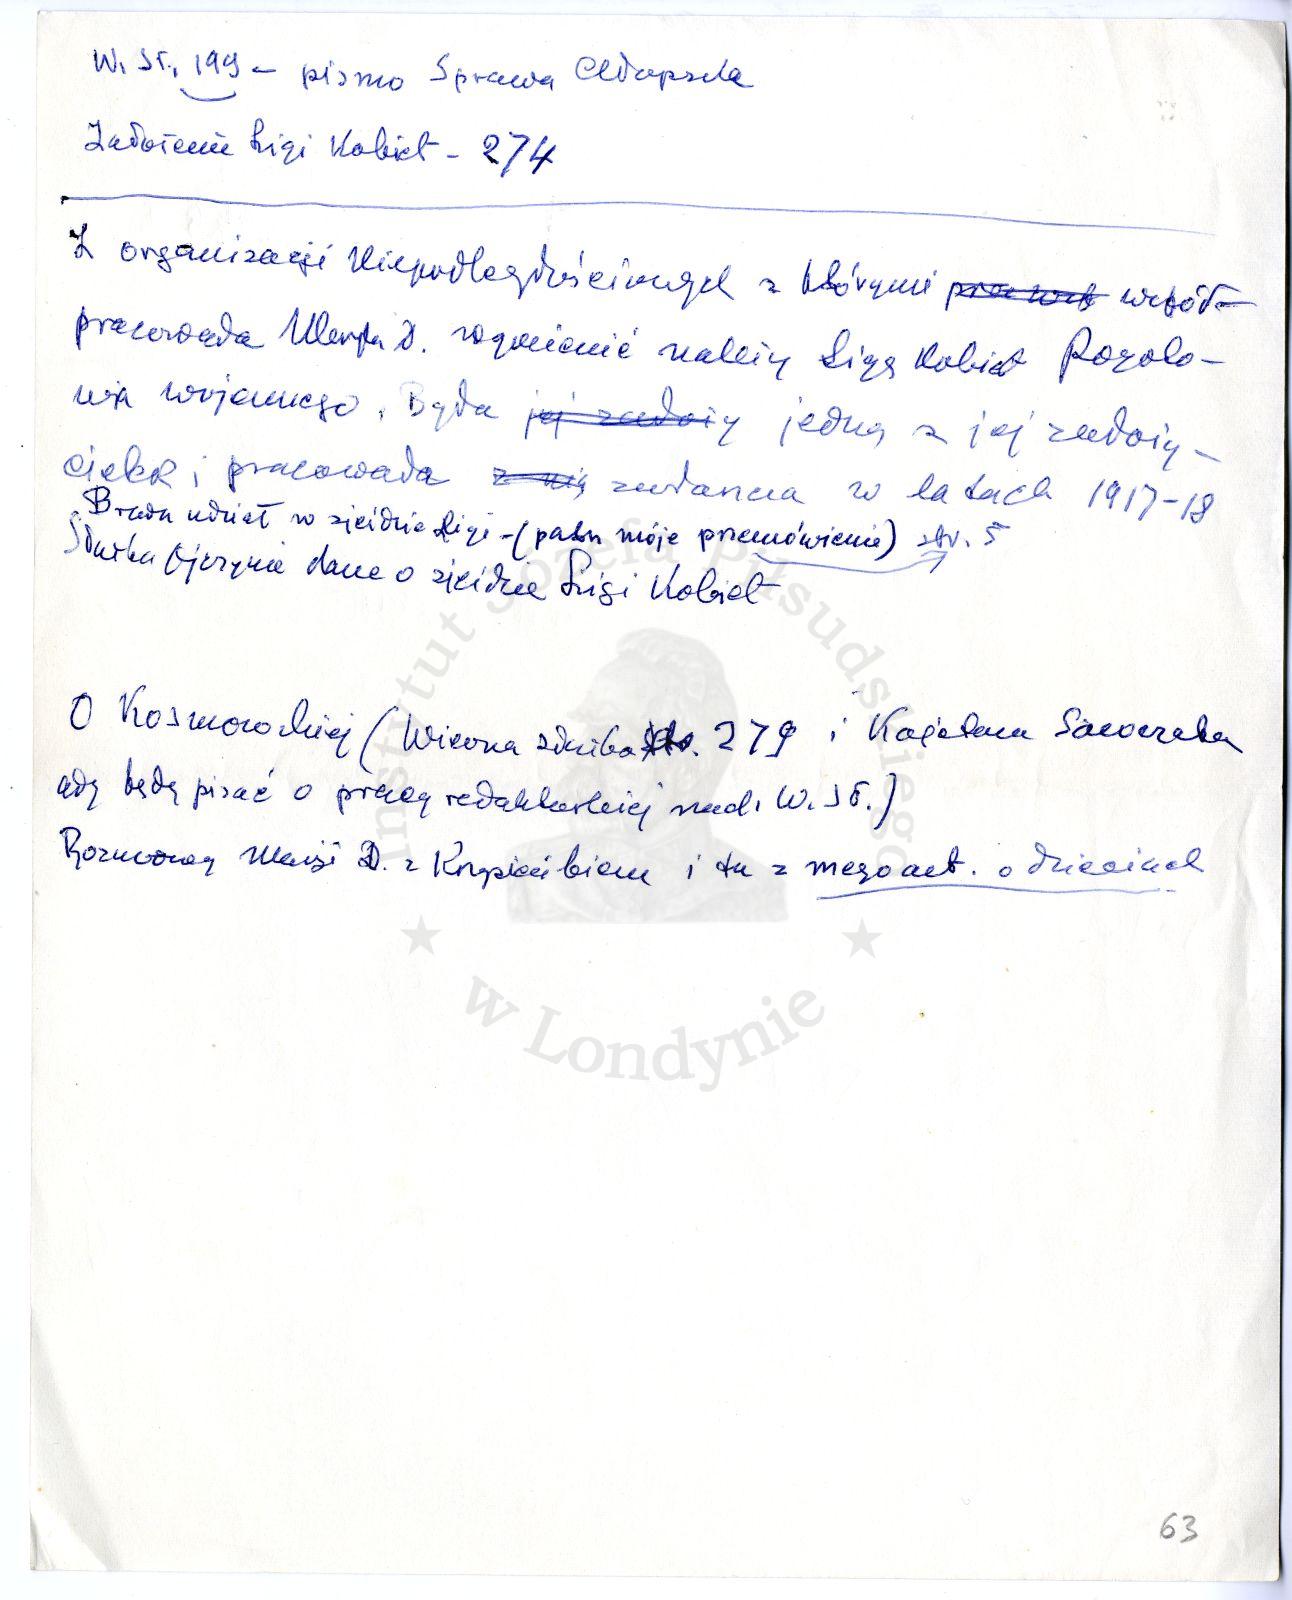 W. St., 199 – pismo Sprawa Chłopska
Założenie Ligi Kobiet – 274
Z organizacji Niepodległościowych z którymi współ-
pracowała Marja D. wymienić należy Ligę Kobiet Pogoto-
wia wojennego. Była jej założy jedną z jej założy-
cielek i pracowała z nią zwłaszcza w latach 1917-18
Brała udział w zjeździe Ligi – (patrz moje przemówienie) str. 5
Służba Ojczyźnie dane o zjeździe Ligi Kobiet
O Kosmowskiej (Wierna służba str. 279 i Kajetana Sawczuka
gdy będę pisać o pracy redaktorskiej nad W. St.)
Rozmowę Marji D. z Krzpieńbiem i tu z mego art. o dzieciach
Instytut Józefa Piłsudskiego
w Londynie
63